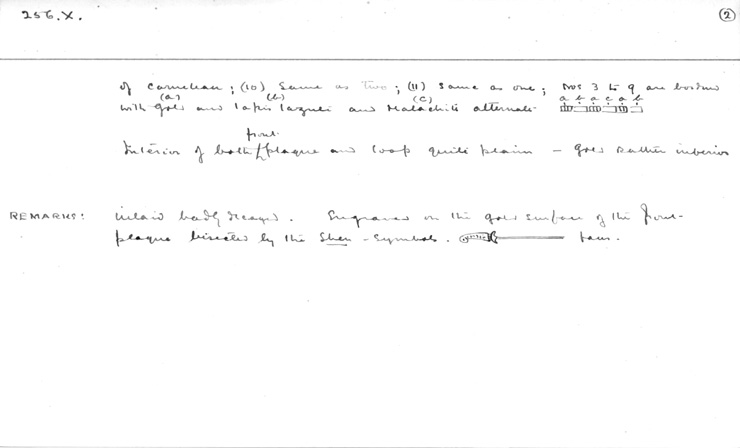 256.X.
(2)
of carnelian; (10) Same as Two; (11) Same as one; Nos 3 to 9 are bordered
(a) (b) (c) a b a c a b
with gold and lapis lazuli and Malachite alternate
front
Interior of both plaque and loop quite plain – gold rather inferior
REMARKS: inlaid badly decayed. Engraved on the gold surface of the front-
plaque bisected by the Shen-Symbols.